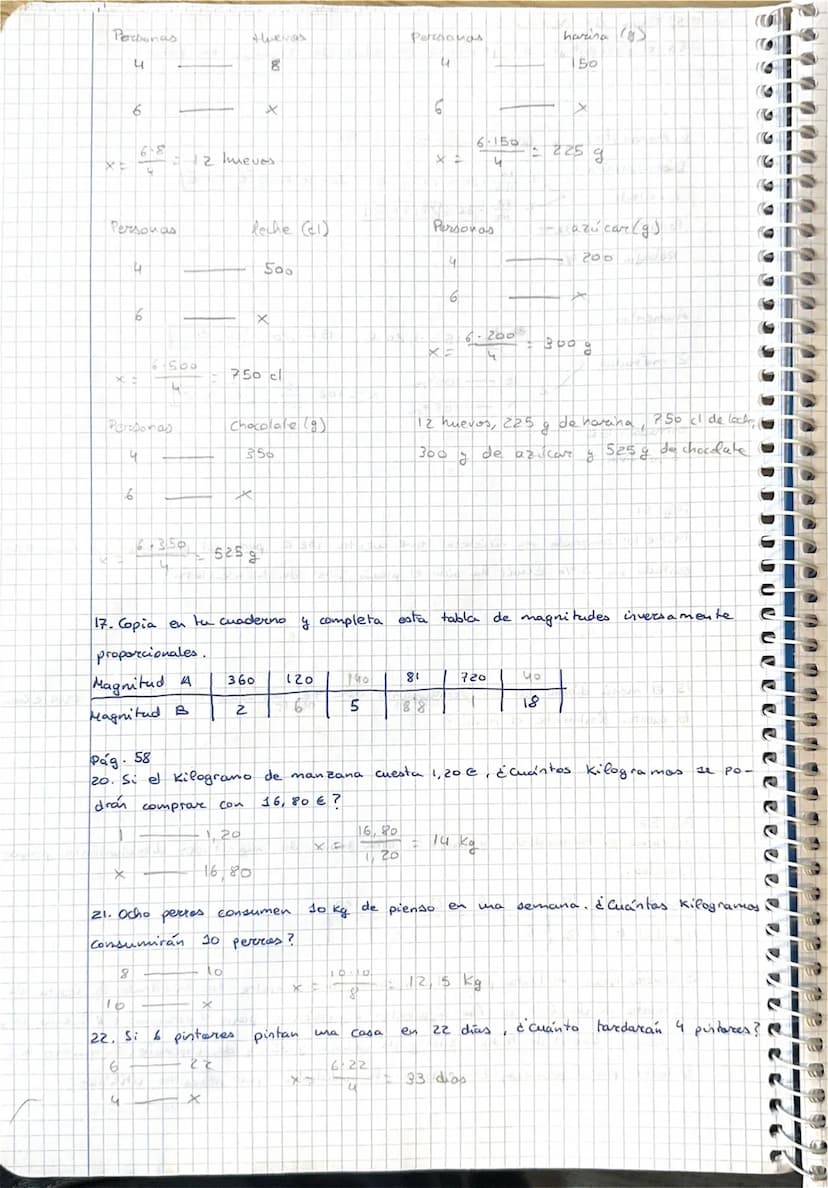 Personas Huevos Personas harina (g)
4 —— 8 4 —— 150
6 —— x 6 —— x
x = 6·8/4 = 12 huevos x = 6·150/4 = 225 g
Personas leche (cl) Personas azúcar (g)
4 —— 500 4 —— 200
6 —— x 6 —— x
x = 6·500/4 = 750 cl x = 6·200/4 = 300 g
Personas chocolate (g) 12 huevos, 225 g de harina, 750 cl de leche,
4 —— 350 300 g de azúcar y 525 g de chocolate
6 —— x
x = 6·350/4 = 525 g
17. Copia en tu cuaderno y completa esta tabla de magnitudes inversamente
proporcionales.
Magnitud A | 360 | 120 | | 81 | 720 | 40 |
Magnitud B | 2 | 6 | 5 | | 1 | 18 |
Pág. 58
20. Si el kilogramo de manzana cuesta 1,20 €, ¿Cuántos kilogramos se po-
drán comprar con 16,80 €?
1 —— 1,20 x = 16,80/1,20 = 14 kg
x —— 16,80
21. Ocho perros consumen 10 kg de pienso en una semana. ¿Cuántos kilogramos
consumirán 10 perros?
8 —— 10 x = 10·10/8 = 12,5 kg
10 —— x
22. Si 6 pintores pintan una casa en 22 días, ¿cuánto tardarán 4 pintores?
6 —— 22 x = 6·22/4 = 33 días
4 —— x